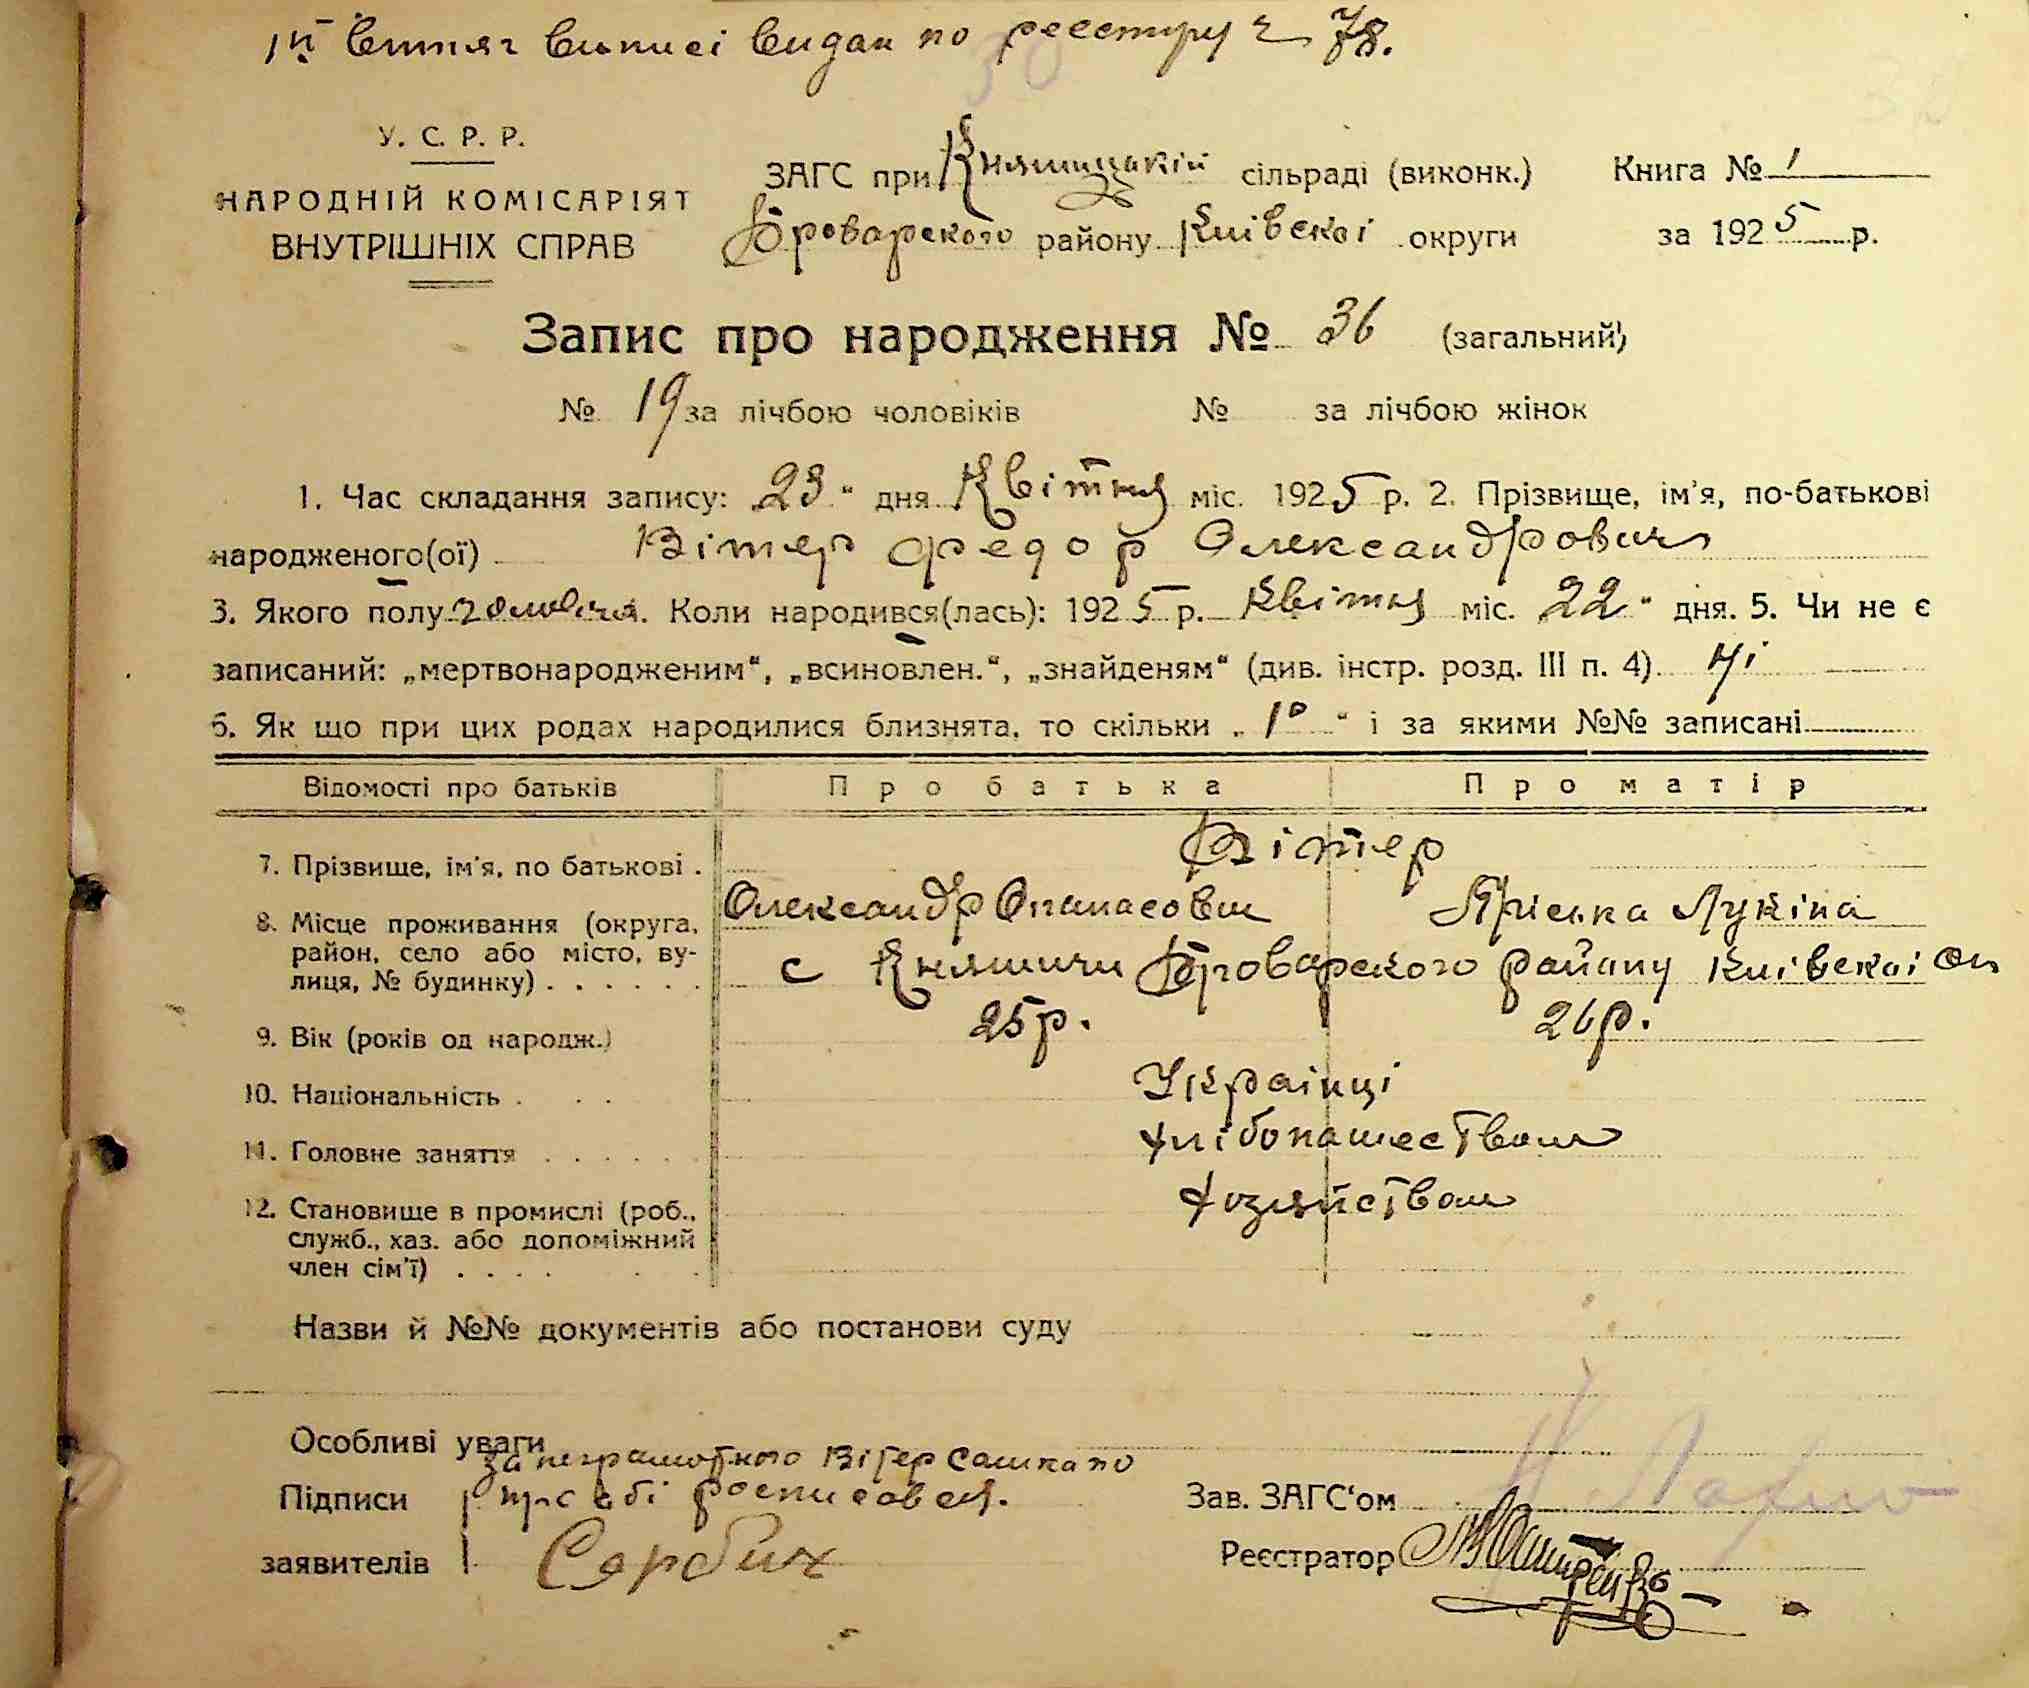 витяг виписі видан по реестру ч 78.
30
У. С. Р. Р.
НАРОДНІЙ КОМІСАРІЯТ
ВНУТРІШНІХ СПРАВ
ЗАГС при Княжицькій сільраді (виконк.)
Броварского району Київскоі округи
Книга № 1
за 1925 р.
Запис про народження № 36 (загальний)
№ 19 за лічбою чоловіків № за лічбою жінок
1. Час складання запису: 23 “ дня Квітня міс. 1925 р. 2. Прізвище, ім'я, по-батькові
народженого(ої) Вітер Федор Олександрович
3. Якого полу чоловіча. Коли народився(лась): 1925 р. Квітня міс. 22 “ дня. 5. Чи не є
записаний: „мертвонародженим“, „всиновлен.“, „знайденям“ (див. інстр. розд. III п. 4) Ні
6. Як що при цих родах народилися близнята, то скільки „ 1 “ і за якими №№ записані
Відомості про батьків Про батька Про матір
7. Прізвище, ім'я, по батькові . Вітер
Олександр Опанасович Пріська Лукіна
8. Місце проживання (округа, район, село або місто, вулиця, № будинку) . . . . . . с Княжичи Броварского району Київскоі Ок
9. Вік (років од народж.) 25 р. 26 р.
10. Національність . . . Украінці
11. Головне заняття . . . . . . хлібопашеством
12. Становище в промислі (роб., служб., хаз. або допоміжний член сім'ї) . . . . хозяйством
Назви й №№ документів або постанови суду
Особливі уваги
за неграмотного Вітер Сашка по
Підписи прозьбі росписовся.
заявителів Сербин
Зав. ЗАГС'ом
Реєстратор